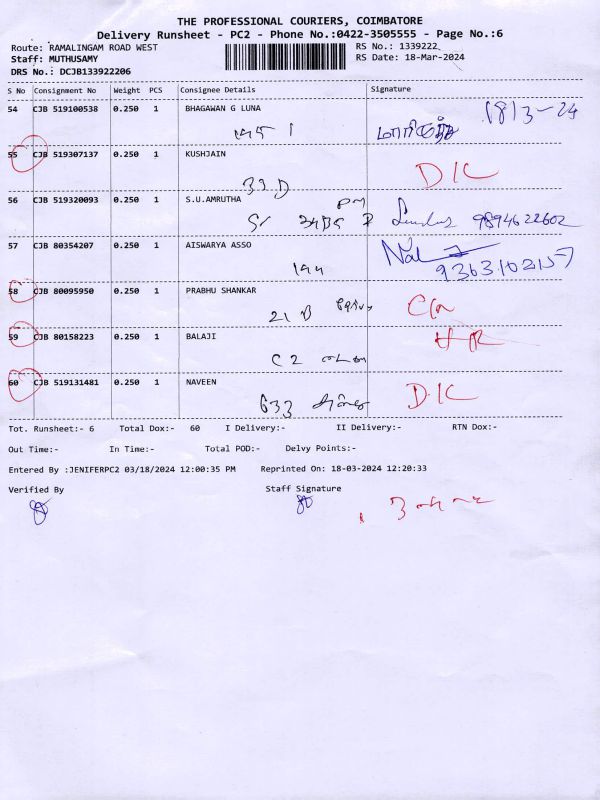 THE PROFESSIONAL COURIERS, COIMBATORE
Delivery Runsheet - PC2 - Phone No.:0422-3505555 - Page No.:6
Route: RAMALINGAM ROAD WEST RS No.: 1339222
Staff: MUTHUSAMY RS Date: 18-Mar-2024
DRS No.: DCJB133922206
S No Consignment No Weight PCS Consignee Details Signature
54 CJB 519100538 0.250 1 BHAGAWAN G LUNA 18/3-24
55 CJB 519307137 0.250 1 KUSHJAIN
D/C
33 D
56 CJB 519320093 0.250 1 S.U.AMRUTHA PM
9894622602
57 CJB 80354207 0.250 1 AISWARYA ASSO
58 CJB 80095950 0.250 1 PRABHU SHANKAR
21 B
59 CJB 80158223 0.250 1 BALAJI
C2
60 CJB 519131481 0.250 1 NAVEEN D/C
633
Tot. Runsheet:- 6 Total Dox:- 60 I Delivery:- II Delivery:- RTN Dox:-
Out Time:- In Time:- Total POD:- Delvy Points:-
Entered By :JENIFERPC2 03/18/2024 12:00:35 PM Reprinted On: 18-03-2024 12:20:33
Verified By Staff Signature